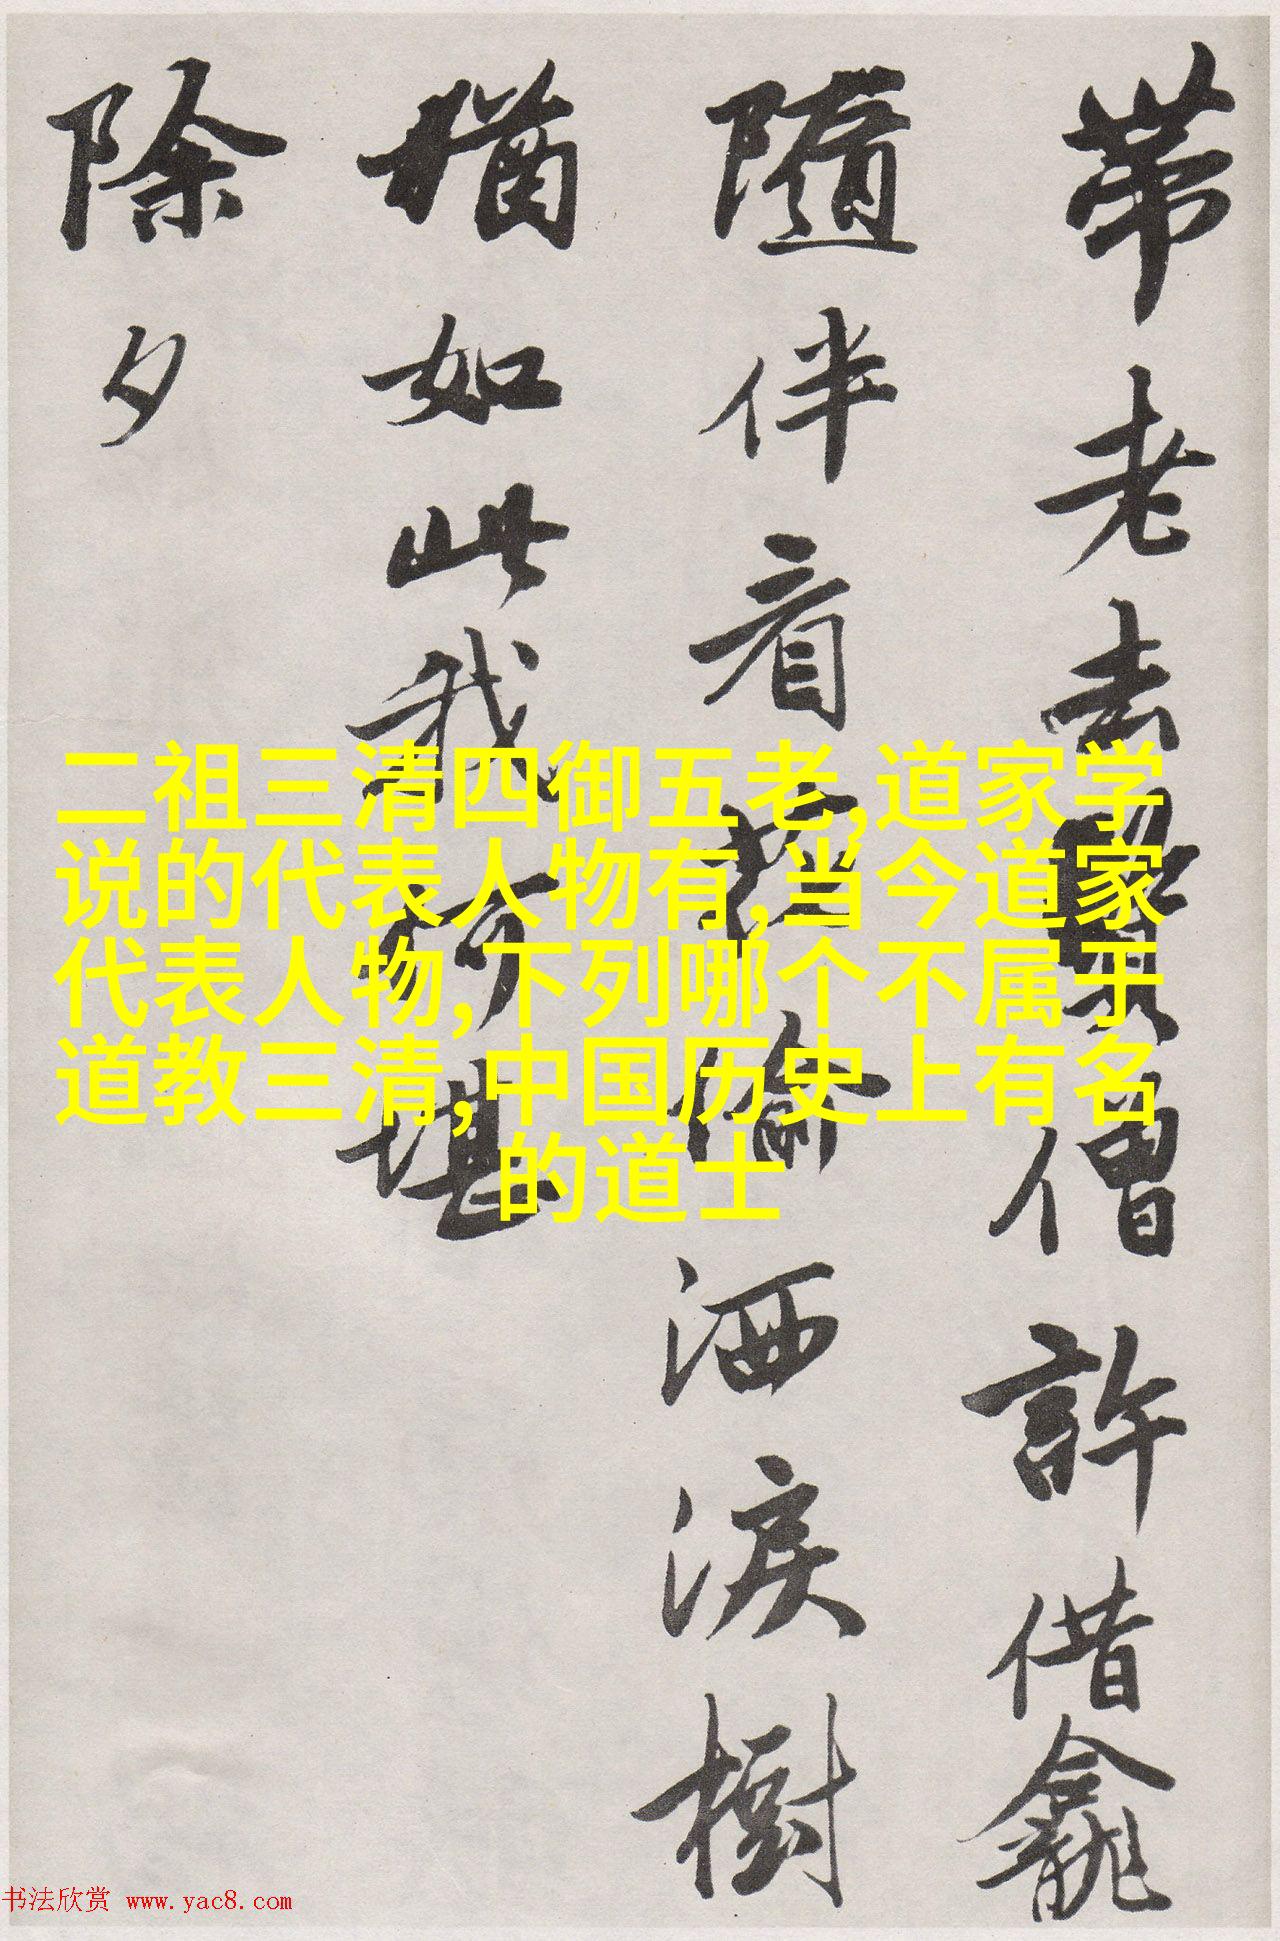 帶老去寰僧許借龕
隨伴看𢬵偷洒淚樹
猶如此我何堪
除夕
二祖三清四御五老,道家学
说的代表人物有,当今道家
代表人物,下列哪个不属于
道教三清,中国历史上有名
的道士
书法欣赏 www.yac8.com